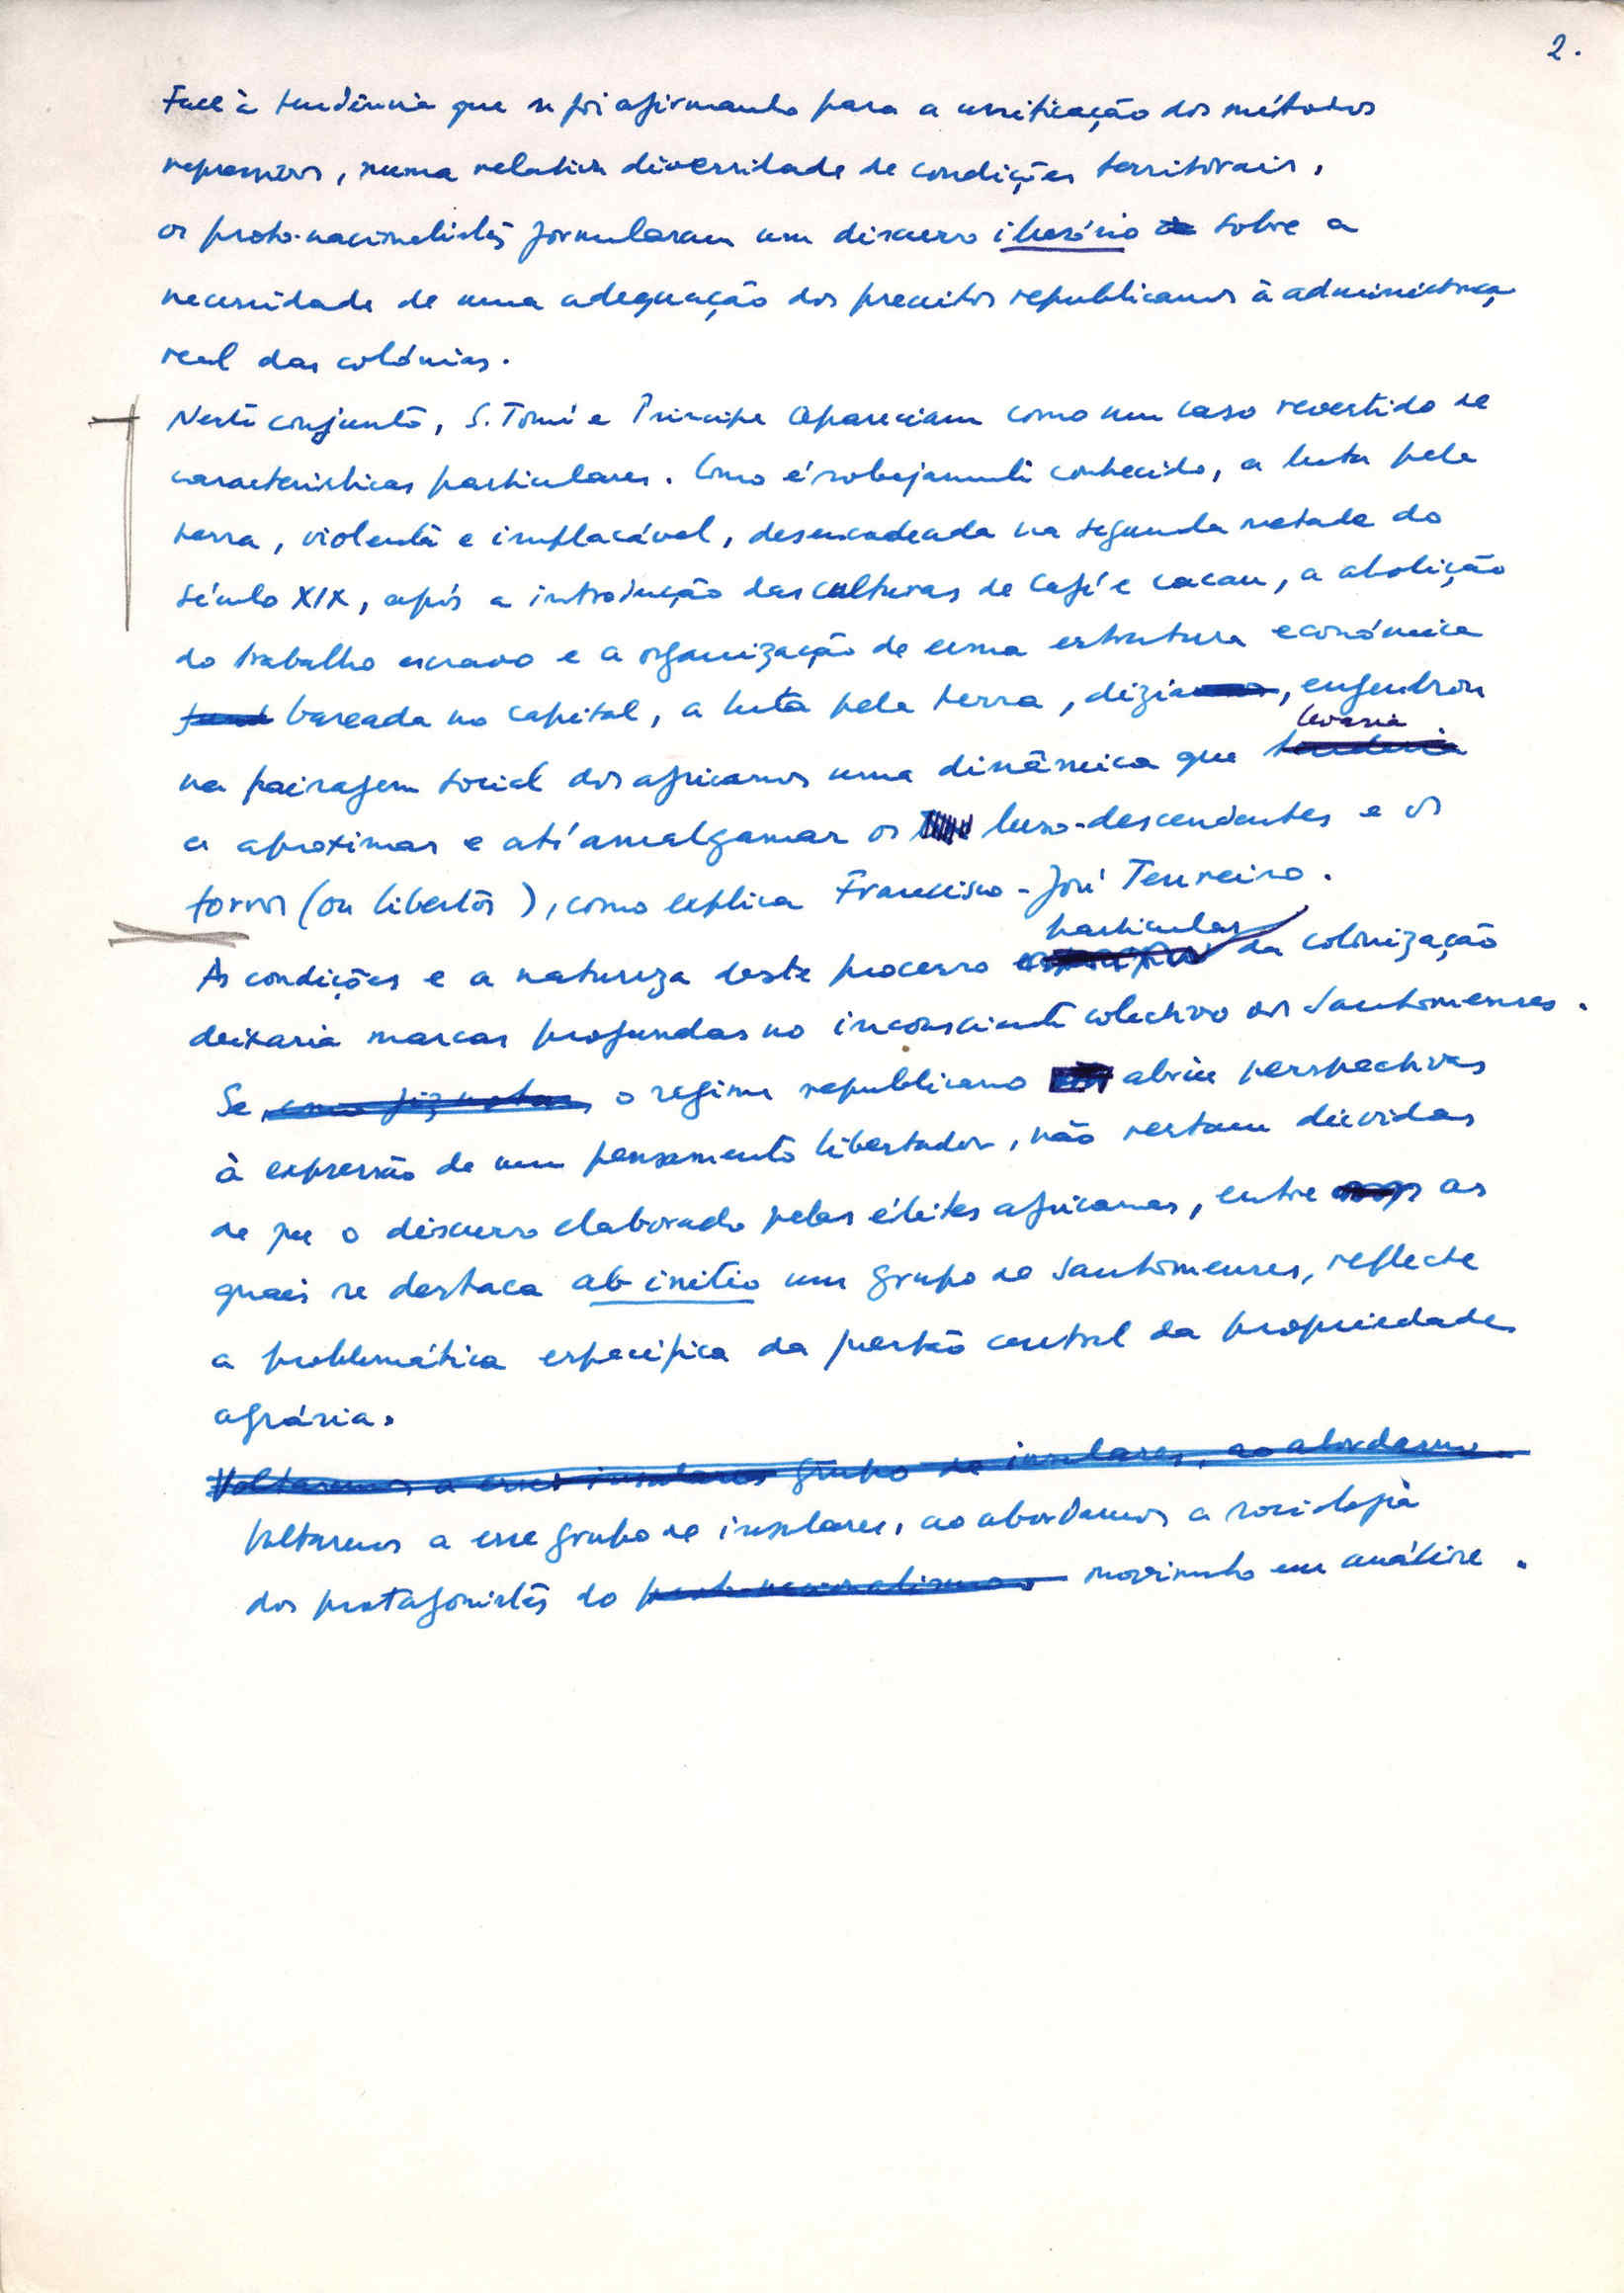 2.
Face à tendência que se foi afirmando para a unificação dos métodos
repressivos, numa relativa diversidade de condições territoriais,
os proto-nacionalistas formularam um discurso ilusório sobre a
necessidade de uma adequação dos preceitos republicanos à administração
real das colónias.
Neste conjunto, S. Tomé e Príncipe apareciam como um caso revestido de
características particulares. Como é sobejamente conhecido, a luta pela
terra, violenta e implacável, desencadeada na segunda metade do
século XIX, após a introdução das culturas de café e cacau, a abolição
do trabalho escravo e a organização de uma estrutura económica
baseada no capital, a luta pela terra, dizia, engendrou
levaria
na paisagem social dos africanos uma dinâmica que tenderia
a aproximar e até amalgamar os luso-descendentes e os
forros (ou libertos), como explica Francisco-José Tenreiro.
particular
As condições e a natureza deste processo da colonização
deixaria marcas profundas no inconsciente colectivo dos Santomenses.
Se como fiz notar, o regime republicano abriu perspectivas
à expressão de um pensamento libertador, não restam dúvidas
de que o discurso elaborado pelas élites africanas, entre as
quais se destaca ab initio um grupo de santomenses, reflecte
a problemática específica da questão central da propriedade
agrária.
Voltaremos a esses insulares grupo de insulares, ao abordarmos
Voltaremos a esse grupo de insulares, ao abordarmos a sociologia
dos protagonistas do proto-nacionalismo movimento em análise.